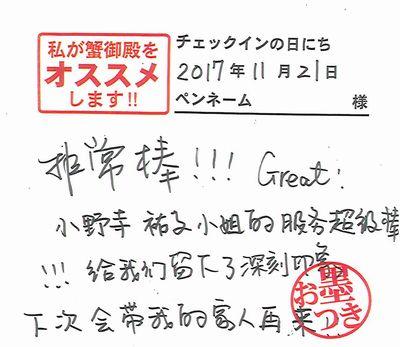 私が蟹御殿を
オススメ
します!!
チェックインの日にち
2017年11月21日
ペンネーム 様
非常棒!!! Great!
小野寺 祐子小姐的服务超级棒
!!! 给我们留下了深刻印象
下次会带我的家人再来
お墨つき